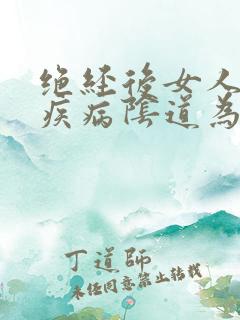 绝經後女人
疾病陰道為
丁道師
未经同意禁止转载